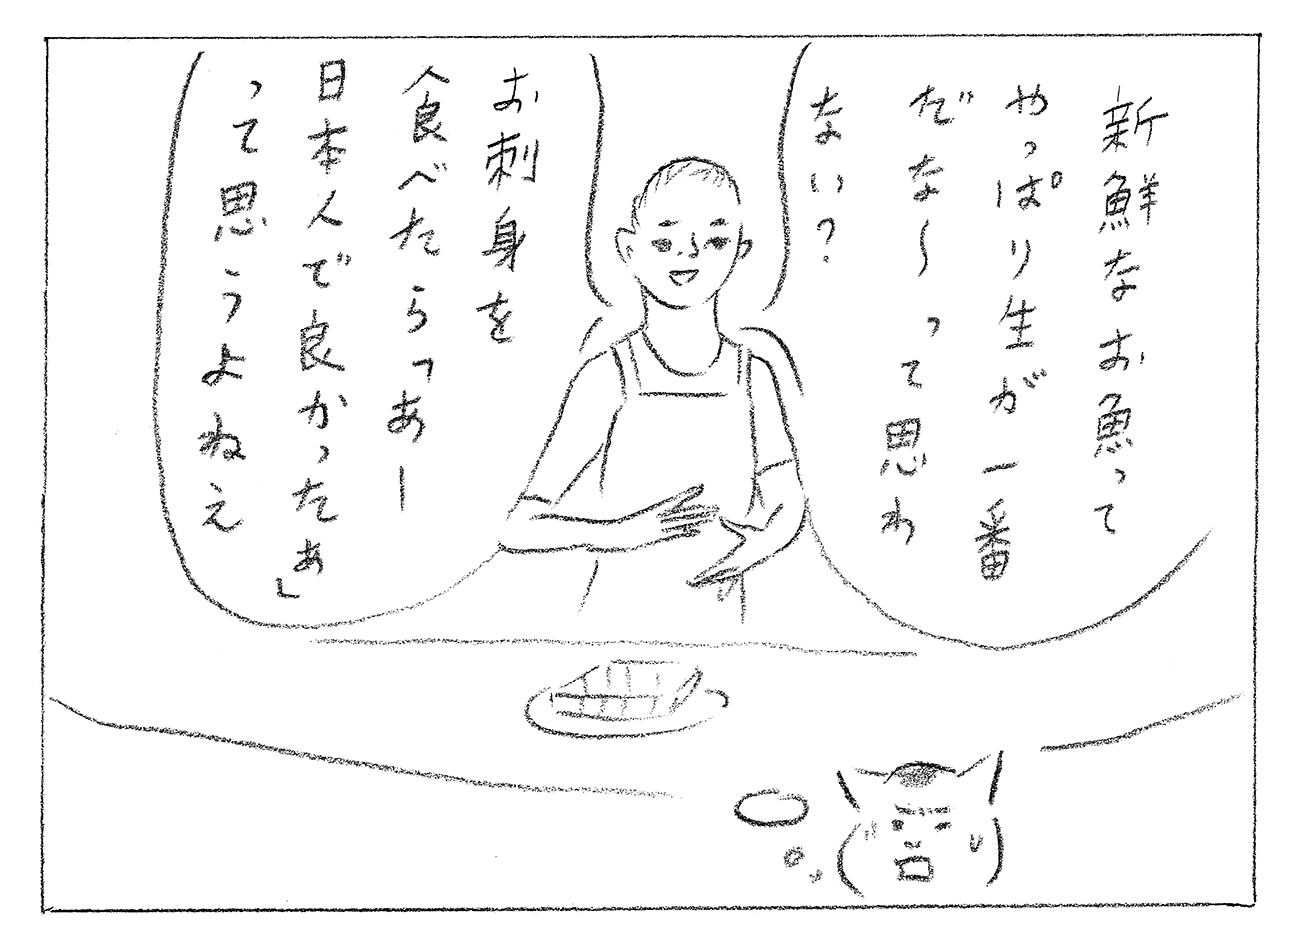 新鮮なお魚って
やっぱり生が一番
だな〜って思わ
ない?
お刺身を
食べたら「あー
日本人で良かったぁ」
って思うよねえ